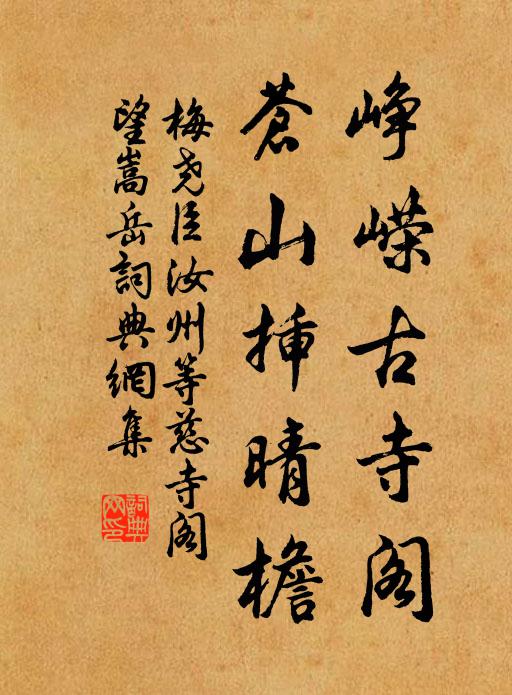 峥嵘古寺阁
蒼山挿晴檐
梅尧臣汝州等慈寺阁
望嵩岳詞典網集
詞典网印